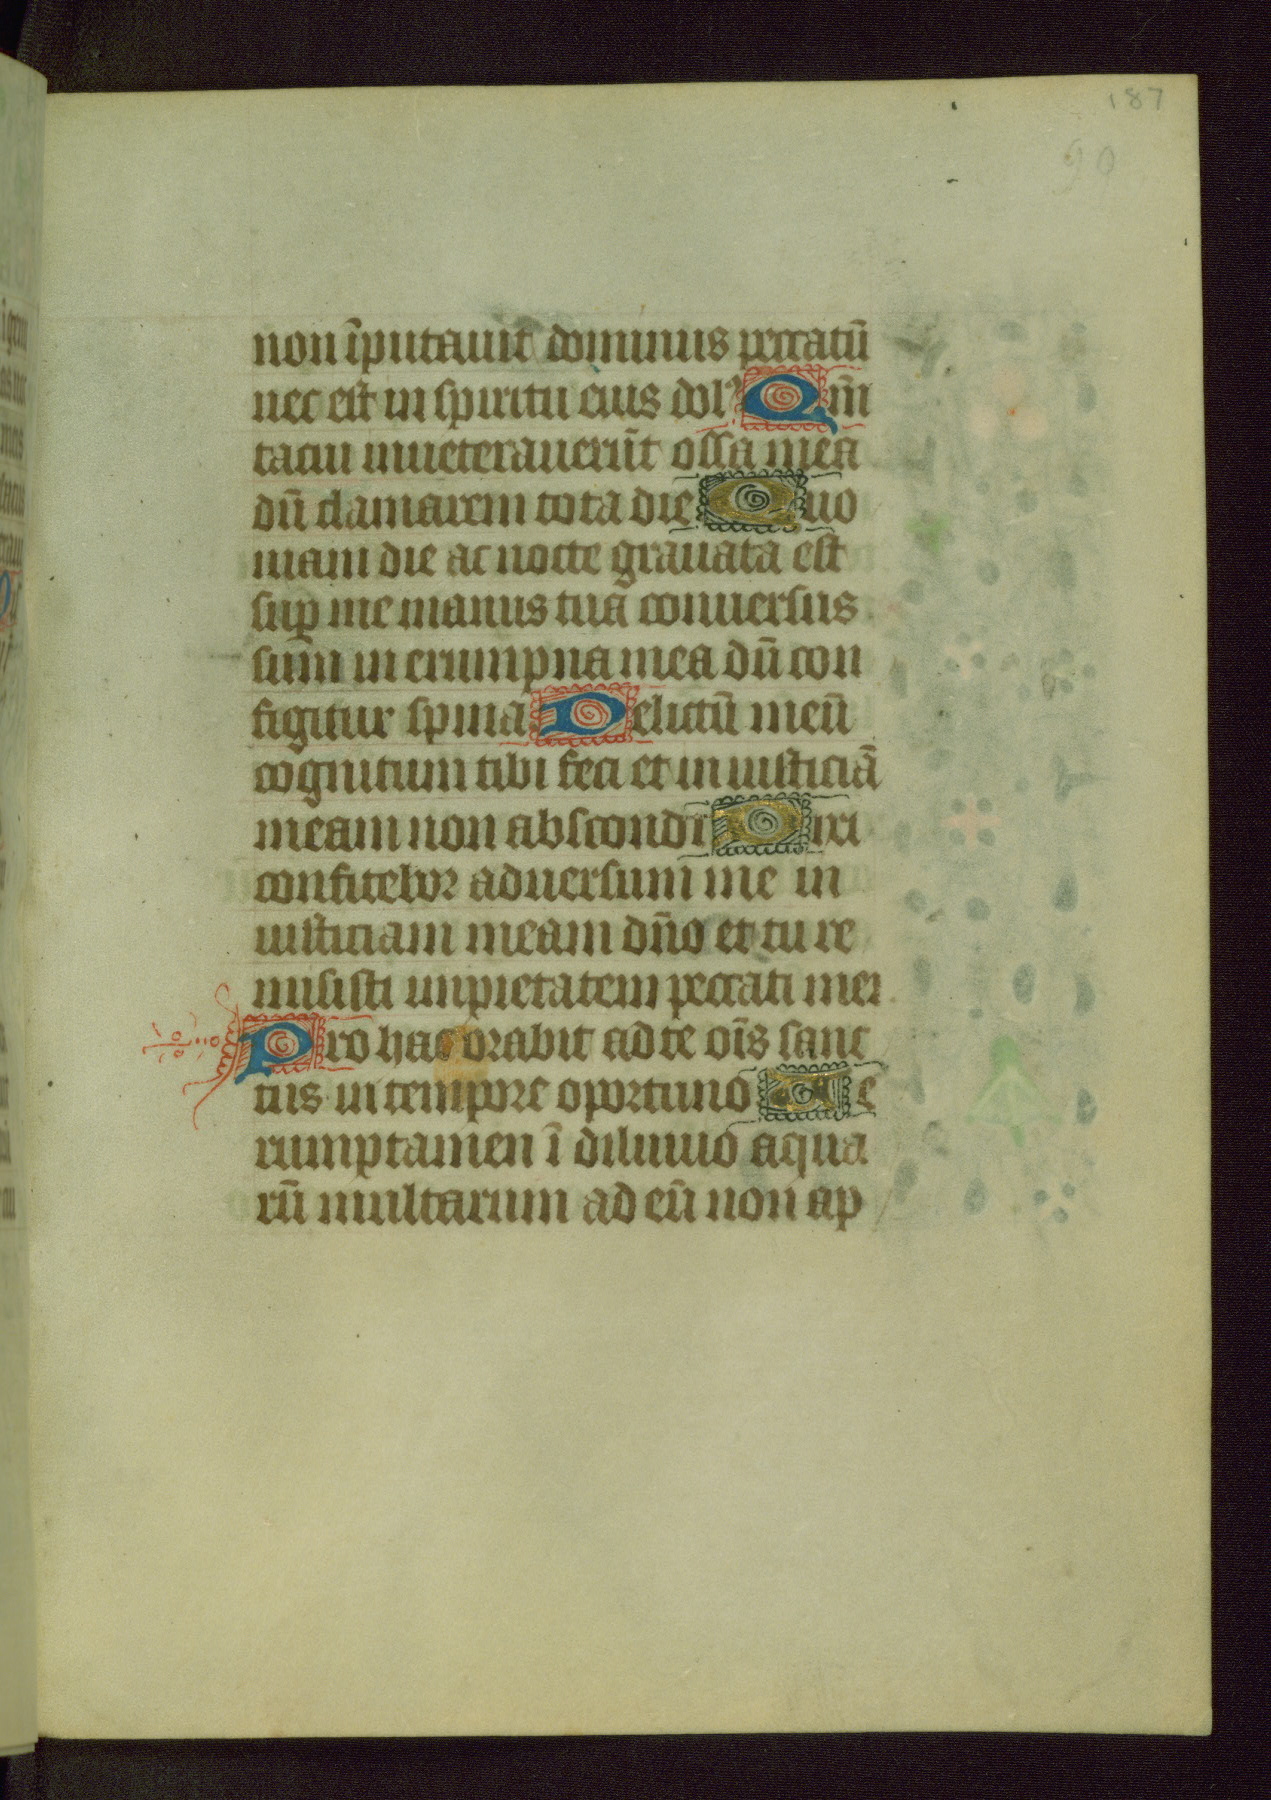 187
99
non īputauit dominus peccatū
nec est in spiritu eius dolꝰ Qm̄
tacui inueterauerūt ossa mea
dū clamarem tota die Quo
niam die ac nocte grauata est
suꝑ me manus tua conuersus
sum in erumpna mea dū con
figitur spina Delictū meū
cognitum tibi feci et iniusticiā
meam non abscondi Dixi
confitebor aduersum me in
iusticiam meam dn̄o et tu re
misisti impietatem peccati mei
Pro hac orabit ad te oīs sanc
tus in tempore oportuno Ue
rumptamen ī diluuio aqua
rū multarum ad eū non ap